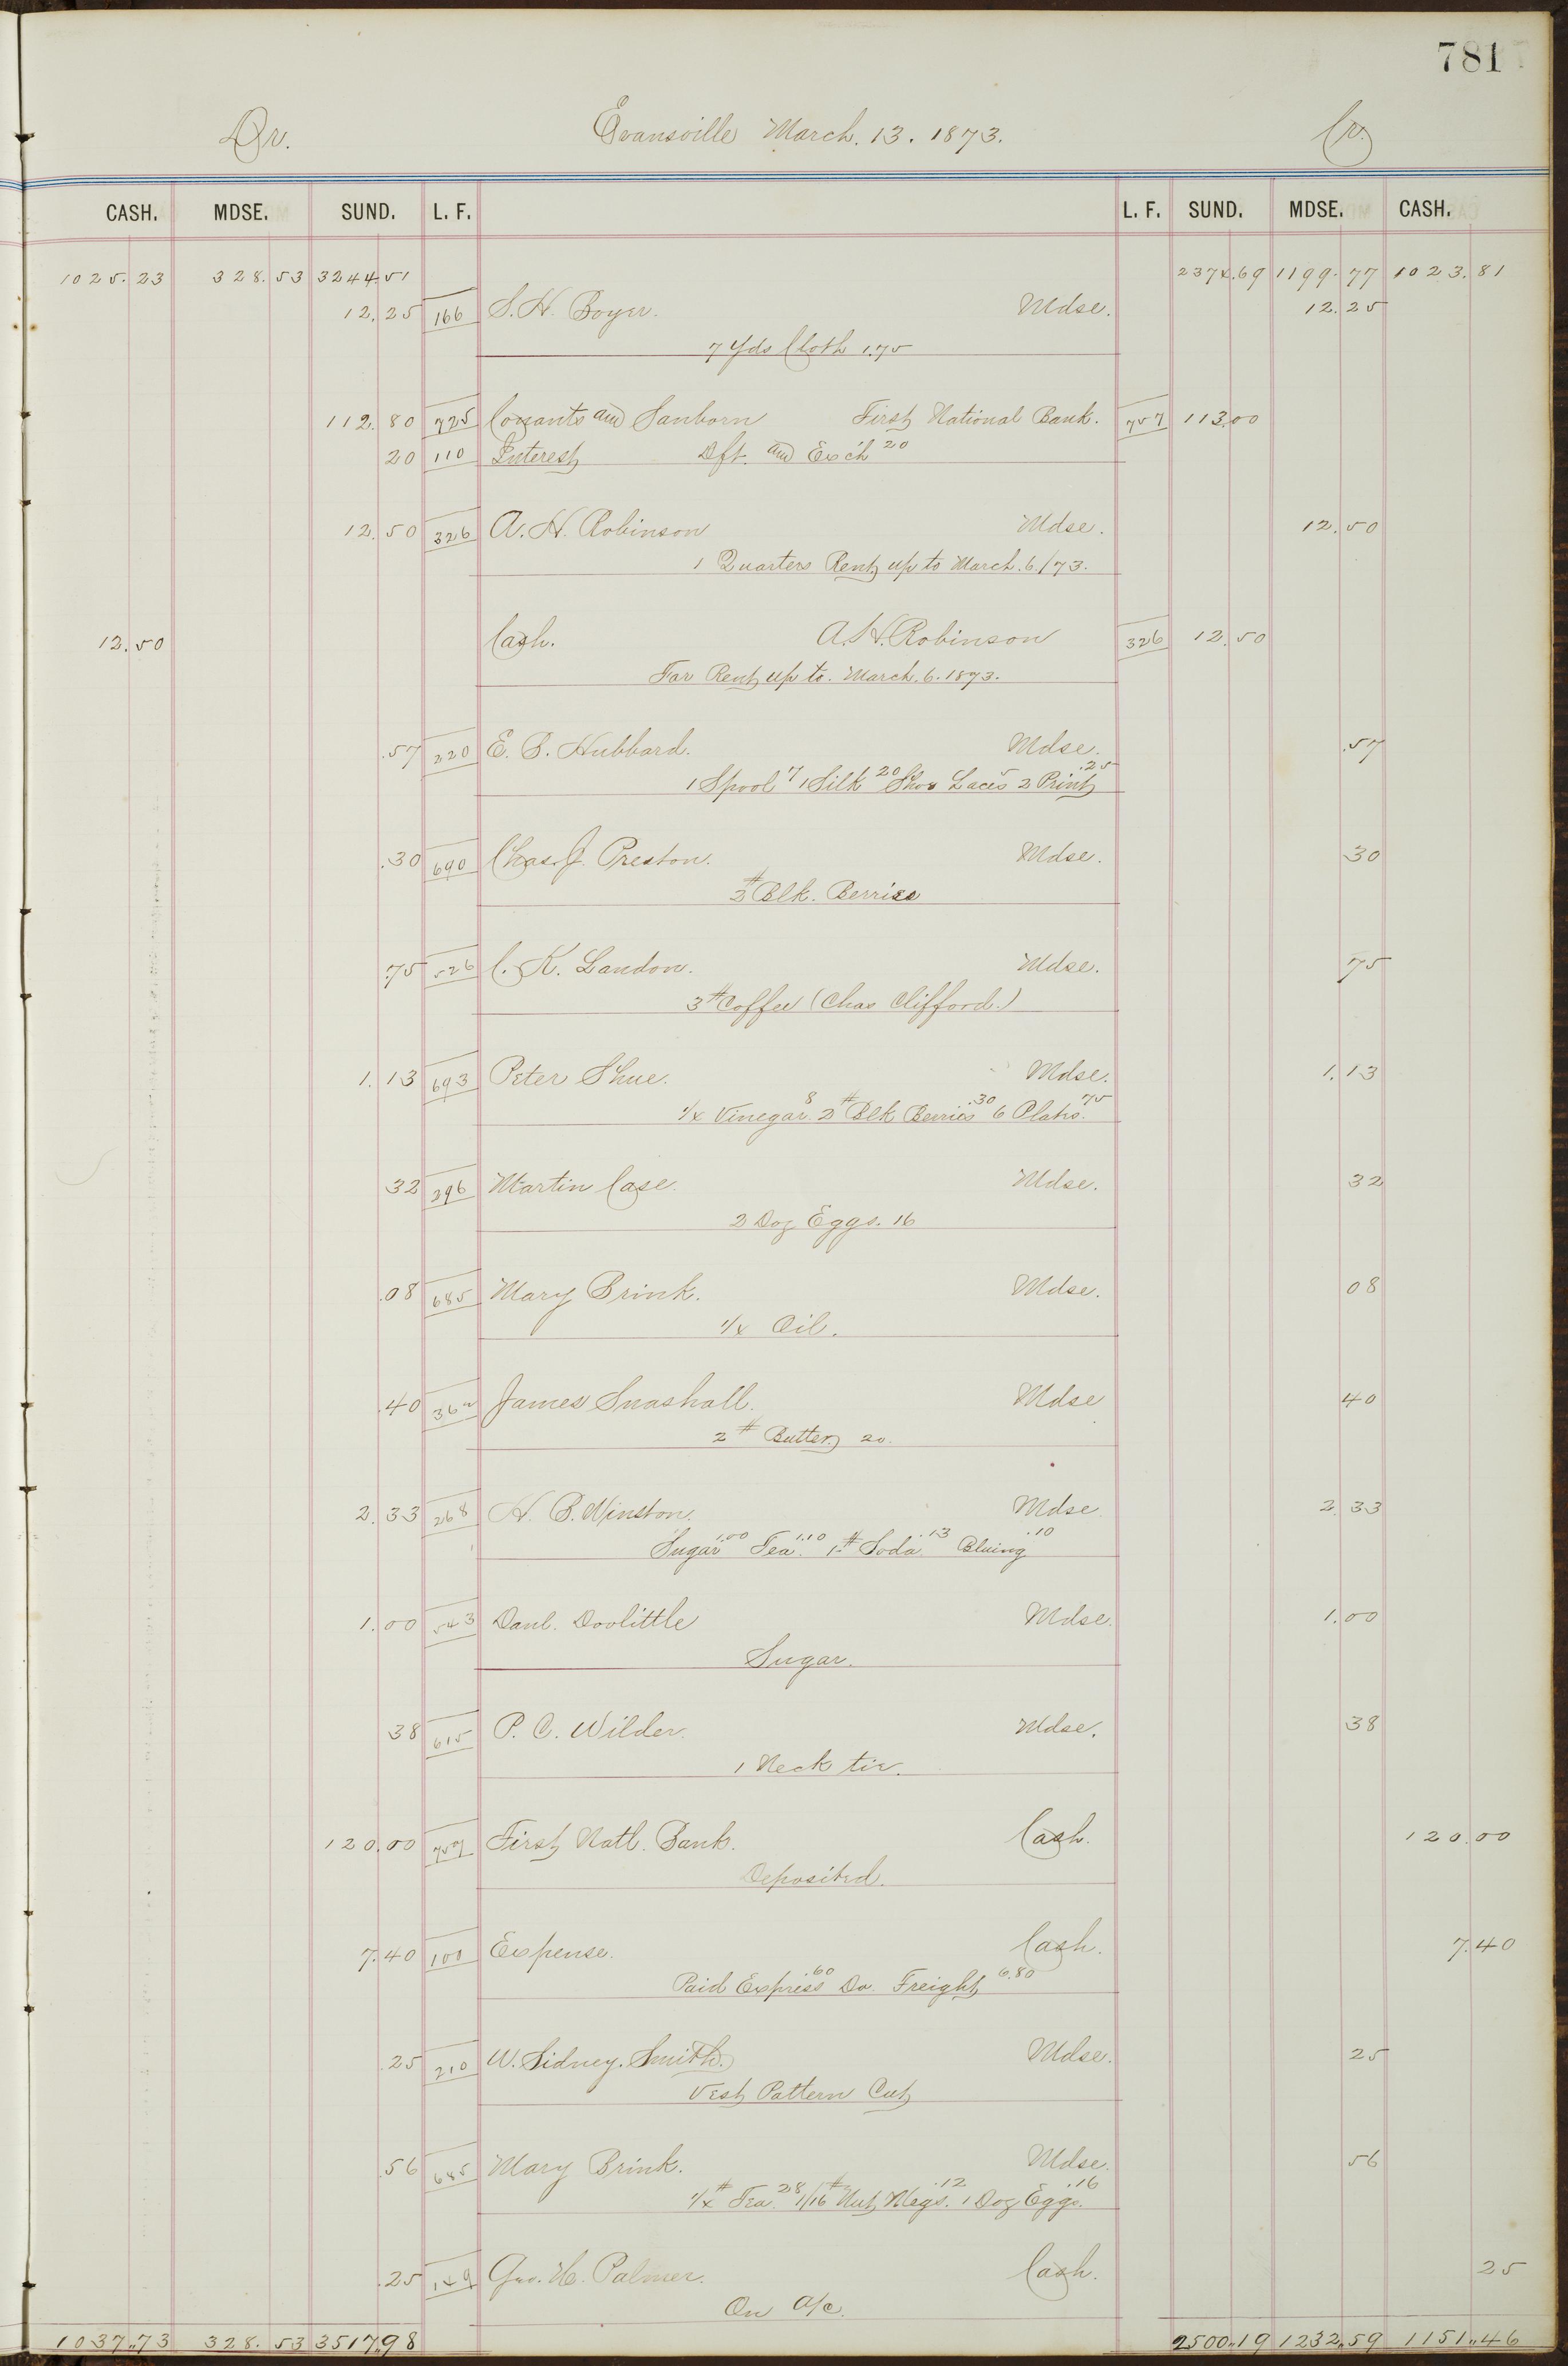 781
Dr. Evansville March. 13. 1873. Cr.
CASH. MDSE. SUND. L. F. L. F. SUND. MDSE. CASH.
1025.23 328.53 3244.51 2374.69 1199.77 1023.81
12.25 166 S. H. Boyer. Mdse. 12.25
7 Yds Cloth 1.75
112.80 725 Conants and Sanborn First National Bank. 757 113.00
20 110 Interest Dft. and Exch 20
12.50 326 A. H. Robinson Mdse. 12.50
1 Quarters Rent up to March. 6/73.
12.50 Cash. A. H. Robinson 326 12.50
For Rent up to. March. 6. 1873.
.57 220 E. B. Hubbard. Mdse. .57
1 Spool 7 1 Silk 20 Shoe Laces 5 2 Print .25
.30 690 Chas. J. Preston. Mdse. 30
2# Blk. Berries
.75 526 C. K. Landon. Mdse. 75
3# Coffee (Chas Clifford.)
1.13 693 Peter Shue. Mdse. 1.13
1/4 Vinegar 8 2# Blk Berries .30 6 Plates. 75
32 296 Martin Case. Mdse. 32
2 Doz Eggs. 16
.08 685 Mary Brink. Mdse. 08
1/4 Oil.
.40 362 James Snashall. Mdse 40
2# Butter 20.
2.33 268 H. B. Winston. Mdse 2.33
Sugar 1.00 Tea 1.10 1# Soda .13 Bluing .10
1.00 543 Danl. Doolittle Mdse. 1.00
Sugar.
38 615 P. C. Wilder. Mdse. 38
1 Neck tie.
120.00 757 First Natl. Bank. Cash. 120.00
Deposited.
7.40 100 Expense. Cash. 7.40
Paid Express .60 Do. Freight 6.80
25 210 W. Sidney. Smith. Mdse. 25
Vest Pattern Cut
56 685 Mary Brink. Mdse. 56
1/4# Tea. 28 1/16# Nut Megs. .12 1 Doz Eggs. .16
.25 149 Geo. H. Palmer. Cash. 25
On A/c.
1037.73 328.53 3517.98 2500.19 1232.59 1151.46